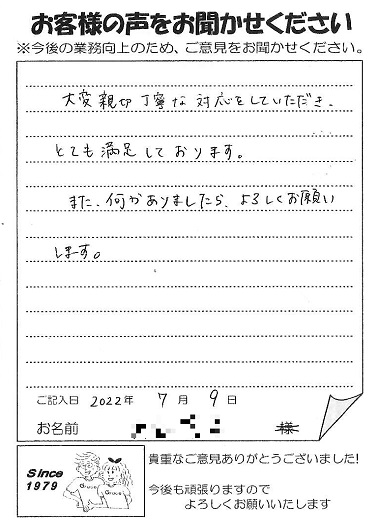 お客様の声をお聞かせください
※今後の業務向上のため、ご意見をお聞かせください。
大変親切丁寧な対応をしていただき、
とても満足しております。
また、何かありましたら、よろしくお願い
します。
ご記入日 2022年 7月 9日
お名前 様
Since
1979
貴重なご意見ありがとうございました!
今後も頑張りますので
よろしくお願いいたします